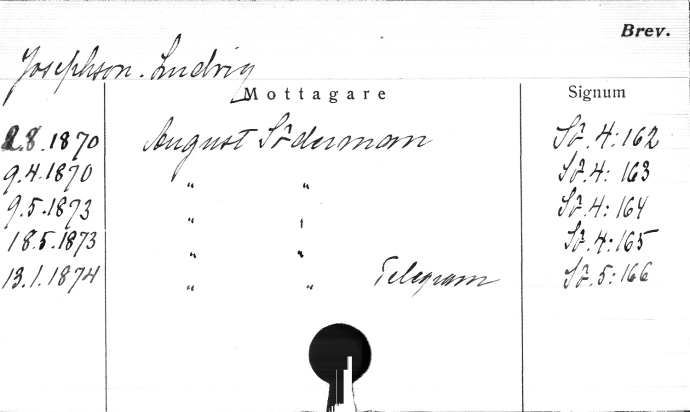 Brev.
Josephson. Ludvig
Mottagare Signum
2.8.1870 August Söderman Sö. 4:162
9.4.1870 " " Sö. 4: 163
9.5.1873 " " Sö. 4: 164
18.5.1873 " " Sö. 4:165
13.1.1874 " " Telegram Sö. 5:166